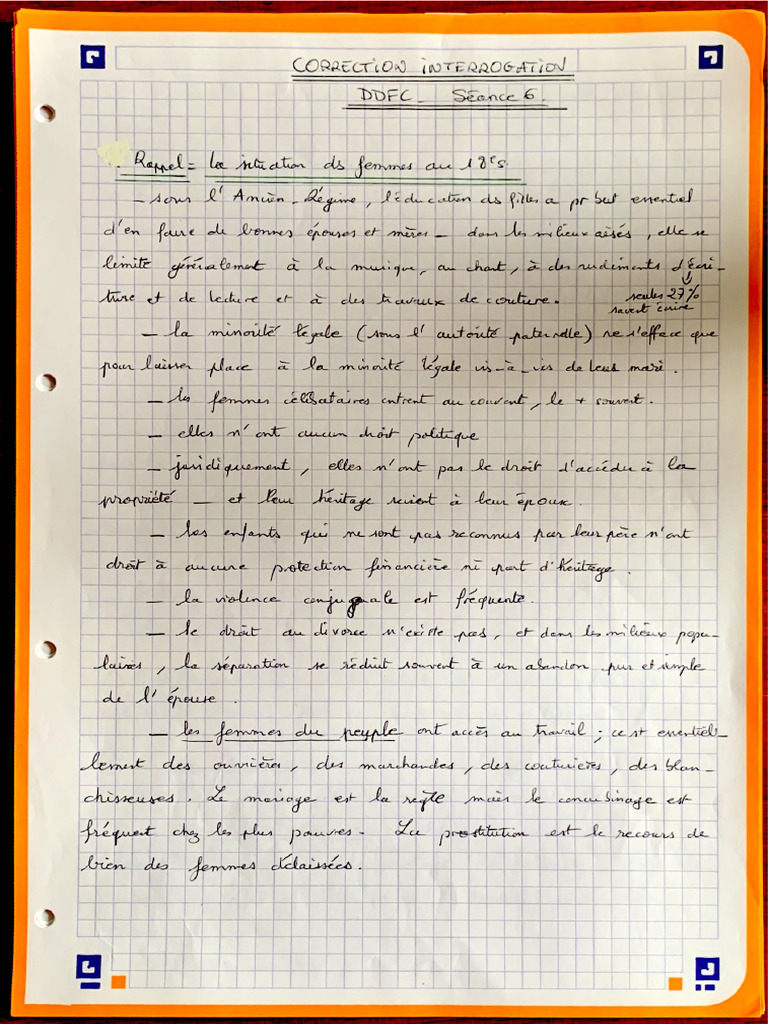 CORRECTION INTERROGATION
DDFC - Séance 6.
Rappel = La situation ds femmes au 18es
- sous l'Ancien-Régime, l'éducation ds filles a pr but essentiel
d'en faire de bonnes épouses et mères - dans les milieux aisés, elle se
limite généralement à la musique, au chant, à des rudiments d'écri-
ture et de lecture et à des travaux de couture.
↓
seules 27%
savent écrire
- la minorité légale (sous l'autorité paternelle) ne s'efface que
pour laisser place à la minorité légale vis-à-vis de leus mari.
- les femmes célibataires entrent au couvent, le + souvent.
- elles n'ont aucun droit politique
- juridiquement, elles n'ont pas le droit d'accéder à la
propriété - et leur héritage revient à leur époux.
- Les enfants qui ne sont pas reconnus par leur père n'ont
droit à aucune protection financière ni part d'héritage.
- la violence conjugale est fréquente.
- le droit au divorce n'existe pas, et dans les milieux popu-
laires, la séparation se réduit souvent à un abandon pur et simple
de l'épouse.
- les femmes du peuple ont accès au travail ; ce st essentiel-
lement des ouvrières, des marchandes, des couturières, des blan-
chisseuses. Le mariage est la règle mais le concubinage est
fréquent chez les plus pauvres. La prostitution est le recours de
bien des femmes délaissées.